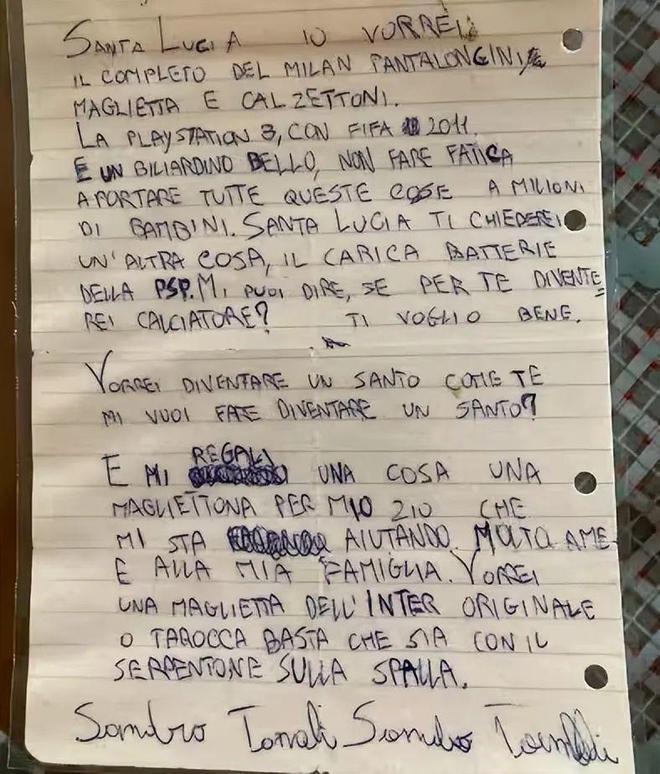 SANTA LUCIA IO VORREI
IL COMPLETO DEL MILAN PANTALONCINI,
MAGLIETTA E CALZETTONI.
LA PLAYSTATION 3, CON FIFA 2011.
E UN BILIARDINO BELLO, NON FARE FATICA
A PORTARE TUTTE QUESTE COSE A MILIONI
DI BAMBINI. SANTA LUCIA TI CHIEDEREI
UN'ALTRA COSA, IL CARICA BATTERIE
DELLA PSP. MI PUOI DIRE, SE PER TE DIVENTE
REI CALCIATORE? TI VOGLIO BENE.
VORREI DIVENTARE UN SANTO COME TE
MI VUOI FARE DIVENTARE UN SANTO?
E MI REGALI UNA COSA UNA
MAGLIETTONA PER MIO ZIO CHE
MI STA AIUTANDO MOLTO AME
E ALLA MIA FAMIGLIA. VORREI
UNA MAGLIETTA DELL'INTER ORIGINALE
O TAROCCA BASTA CHE SIA CON IL
SERPENTONE SULLA SPALLA.
Sandro Tonali Sandro Tonali